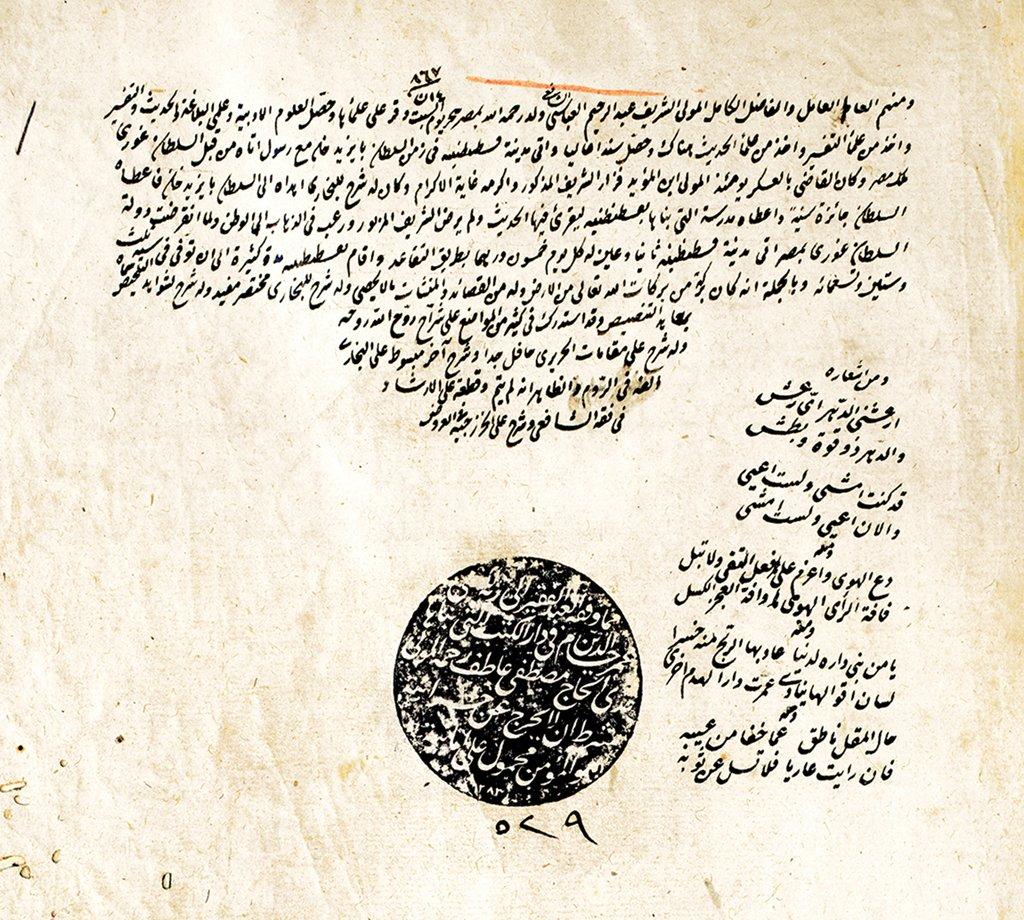 ٨٦٧
ومنهم العالم العامل والفاضل الكامل المولى الشريف عبد الرحيم العباسي ولد رحمه الله بمصر وقرء على علمائها وحصل العلوم الادبية وعلمي البلاغة والحديث والتفسير
واخذ من علماء التفسير واخذ من علماء الحديث هناك وحصل سندا عاليا واتى مدينة قسطنطنيه في زمن السلطان بايزيد خان مع رسول اتاه من قبل السلطان غوري
ملك مصر وكان القاضي بالعسكر يومئذ المولى ابن المؤيد فزار الشريف المذكور واكرمه غاية الاكرام وكان له شرح للبخاري اهداه الى السلطان بايزيد خان فاعطاه
السلطان جائزة سنية واعطاه مدرسة التي بناها بقسطنطنيه ليقرئ فيها الحديث ولم يرض الشريف المزبور ورغب في الذهاب الى الوطن ولما انقرضت دولة
السلطان غوري بمصر اتى مدينة قسطنطنيه ثانيا وعين له كل يوم خمسون درهما بطريق التقاعد واقام بقسطنطنيه مدة كثيرة الى ان توفي في سنة ثلث
وستين وتسعمائة وبالجملة انه كان بركة من بركات الله تعالى من الارض وله من القصائد والمنشآت ما لا يحصى وله شرح للبخاري مختصر مفيد وله شرح لشواهد التلخيص سماه
بمعاهد التنصيص وقد استدرك في كثير من المواضع على شراح روح الله روحه
وله شرح على مقامات الحريري حافل جدا وشرح آخر مبسوط على البخاري
الفه في الروم والظاهر انه لم يتم وقطعة على الارشاد
في فقه الشافعي وشرح على الخزرجية في العروض
ومن اشعاره
ارعشني الدهر اي رعش
والدهر ذو قوة وبطش
قد كنت امشي ولست اعيي
والآن اعيي ولست امشي
ومنه
دع الهوى واعزم على فعل التقى ولا تبل
فآفة الراى الهوى وآفة العجز الكسل
ومنه
يا من بنى داره لدنيا عاد بها الربح منه خسرا
لسان اقوالها ينادي عمرت دارا لهدم اخرى
ومنه
حال المقل ناطق عما خفا من عيبه
فان رايت عاريا فلا تسل عن ثوبه
مصطفى عاطف
٥٢٩